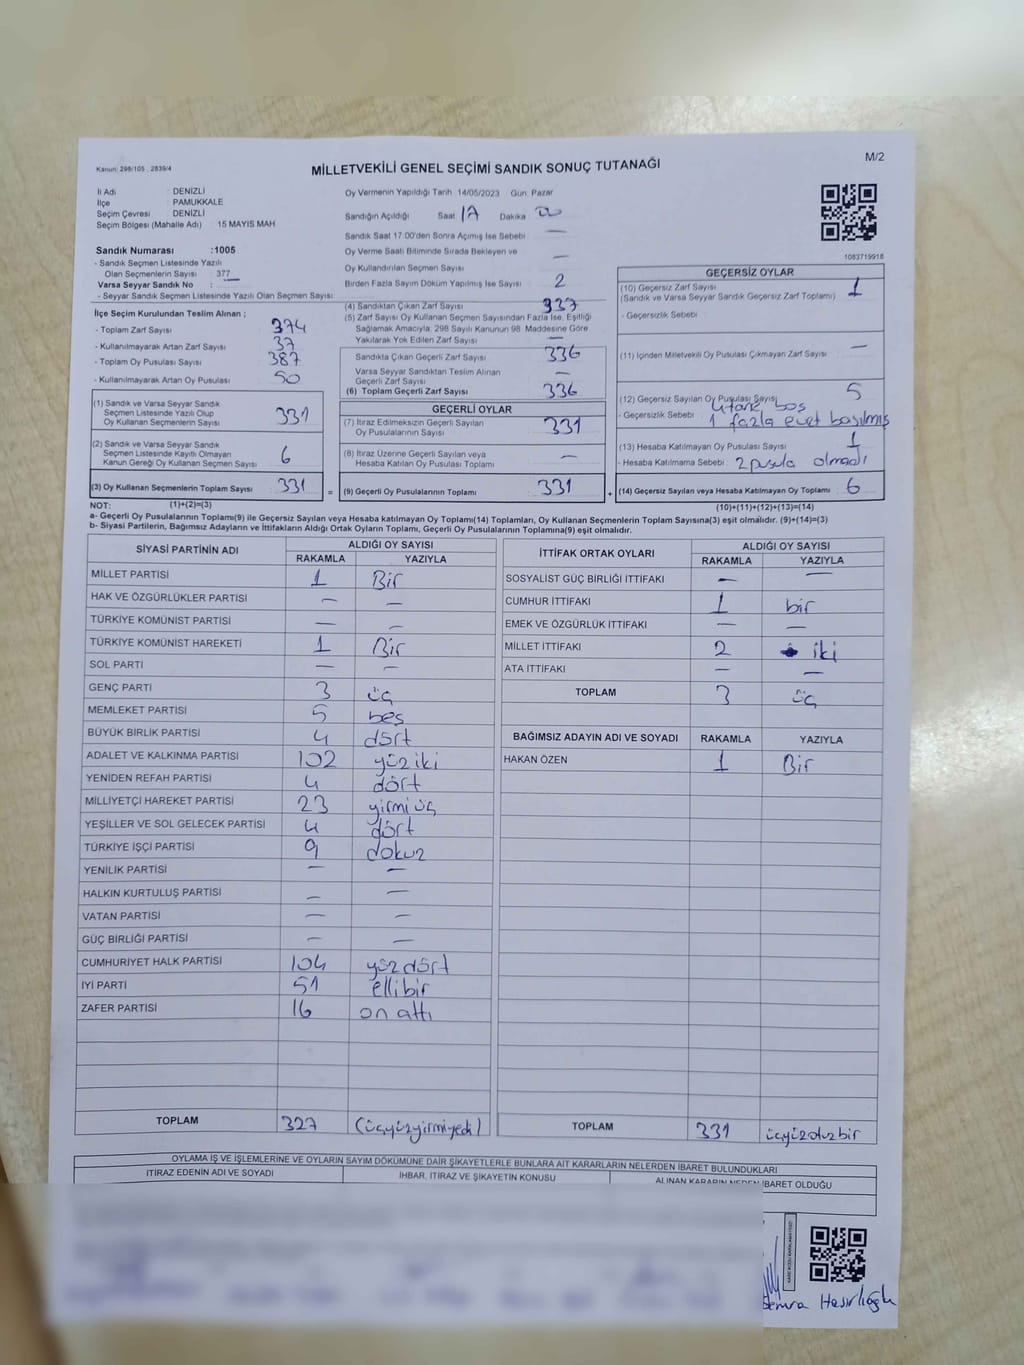 M/2
Kanun: 298/105 , 2839/4
MİLLETVEKİLİ GENEL SEÇİMİ SANDIK SONUÇ TUTANAĞI
İl Adı : DENİZLİ
İlçe : PAMUKKALE
Seçim Çevresi : DENİZLİ
Seçim Bölgesi (Mahalle Adı) : 15 MAYIS MAH
Sandık Numarası :1005
- Sandık Seçmen Listesinde Yazılı
Olan Seçmenlerin Sayısı : 377
Varsa Seyyar Sandık No :
- Seyyar Sandık Seçmen Listesinde Yazılı Olan Seçmen Sayısı:
İlçe Seçim Kurulundan Teslim Alınan ;
- Toplam Zarf Sayısı 374
- Kullanılmayarak Artan Zarf Sayısı 37
- Toplam Oy Pusulası Sayısı 387
- Kullanılmayarak Artan Oy Pusulası 50
(1) Sandık ve Varsa Seyyar Sandık
Seçmen Listesinde Yazılı Olup
Oy Kullanan Seçmenlerin Sayısı 331
(2) Sandık ve Varsa Seyyar Sandık
Seçmen Listesinde Kayıtlı Olmayan
Kanun Gereği Oy Kullanan Seçmen Sayısı 6
(3) Oy Kullanan Seçmenlerin Toplam Sayısı 331 =
(1)+(2)=(3)
Oy Vermenin Yapıldığı Tarih 14/05/2023 Gün: Pazar
Sandığın Açıldığı Saat 17 Dakika : 00
Sandık Saat 17:00'den Sonra Açılmış İse Sebebi : —
Oy Verme Saati Bitiminde Sırada Bekleyen ve
Oy Kullandırılan Seçmen Sayısı —
Birden Fazla Sayım Döküm Yapılmış İse Sayısı 2
(4) Sandıktan Çıkan Zarf Sayısı 337
(5) Zarf Sayısı Oy Kullanan Seçmen Sayısından Fazla İse, Eşitliği
Sağlamak Amacıyla; 298 Sayılı Kanunun 98. Maddesine Göre
Yakılarak Yok Edilen Zarf Sayısı —
Sandıkta Çıkan Geçerli Zarf Sayısı 336
Varsa Seyyar Sandıktan Teslim Alınan
Geçerli Zarf Sayısı —
(6) Toplam Geçerli Zarf Sayısı 336
GEÇERLİ OYLAR
(7) İtiraz Edilmeksizin Geçerli Sayılan
Oy Pusulalarının Sayısı 331
(8) İtiraz Üzerine Geçerli Sayılan veya
Hesaba Katılan Oy Pusulası Toplamı —
(9) Geçerli Oy Pusulalarının Toplamı 331 +
1083719918
GEÇERSİZ OYLAR
(10) Geçersiz Zarf Sayısı 1
(Sandık ve Varsa Seyyar Sandık Geçersiz Zarf Toplamı)
- Geçersizlik Sebebi :
(11) İçinden Milletvekili Oy Pusulası Çıkmayan Zarf Sayısı —
(12) Geçersiz Sayılan Oy Pusulası Sayısı 5
- Geçersizlik Sebebi : 4 tane boş
1 fazla evet basılmış
(13) Hesaba Katılmayan Oy Pusulası Sayısı 1
- Hesaba Katılmama Sebebi : 2 pusula olmadı
(14) Geçersiz Sayılan veya Hesaba Katılmayan Oy Toplamı 6
(10)+(11)+(12)+(13)=(14)
NOT:
a- Geçerli Oy Pusulalarının Toplamı(9) ile Geçersiz Sayılan veya Hesaba katılmayan Oy Toplamı(14) Toplamları, Oy Kullanan Seçmenlerin Toplam Sayısına(3) eşit olmalıdır. (9)+(14)=(3)
b- Siyasi Partilerin, Bağımsız Adayların ve İttifakların Aldığı Ortak Oyların Toplamı, Geçerli Oy Pusulalarının Toplamına(9) eşit olmalıdır.
SİYASİ PARTİNİN ADI ALDIĞI OY SAYISI
RAKAMLA YAZIYLA
MİLLET PARTİSİ 1 Bir
HAK VE ÖZGÜRLÜKLER PARTİSİ — —
TÜRKİYE KOMÜNİST PARTİSİ — —
TÜRKİYE KOMÜNİST HAREKETİ 1 Bir
SOL PARTİ — —
GENÇ PARTİ 3 üç
MEMLEKET PARTİSİ 5 beş
BÜYÜK BİRLİK PARTİSİ 4 dört
ADALET VE KALKINMA PARTİSİ 102 yüz iki
YENİDEN REFAH PARTİSİ 4 dört
MİLLİYETÇİ HAREKET PARTİSİ 23 yirmi üç
YEŞİLLER VE SOL GELECEK PARTİSİ 4 dört
TÜRKİYE İŞÇİ PARTİSİ 9 dokuz
YENİLİK PARTİSİ — —
HALKIN KURTULUŞ PARTİSİ — —
VATAN PARTİSİ — —
GÜÇ BİRLİĞİ PARTİSİ — —
CUMHURİYET HALK PARTİSİ 104 yüz dört
İYİ PARTİ 51 elli bir
ZAFER PARTİSİ 16 on altı
TOPLAM 327 (üçyüzyirmiyedi)
İTTİFAK ORTAK OYLARI ALDIĞI OY SAYISI
RAKAMLA YAZIYLA
SOSYALİST GÜÇ BİRLİĞİ İTTİFAKI — —
CUMHUR İTTİFAKI 1 bir
EMEK VE ÖZGÜRLÜK İTTİFAKI — —
MİLLET İTTİFAKI 2 iki
ATA İTTİFAKI — —
TOPLAM 3 üç
BAĞIMSIZ ADAYIN ADI VE SOYADI RAKAMLA YAZIYLA
HAKAN ÖZEN 1 Bir
TOPLAM 331 üçyüzotuzbir
OYLAMA İŞ VE İŞLEMLERİNE VE OYLARIN SAYIM DÖKÜMÜNE DAİR ŞİKAYETLERLE BUNLARA AİT KARARLARIN NELERDEN İBARET BULUNDUKLARI
İTİRAZ EDENİN ADI VE SOYADI İHBAR, İTİRAZ VE ŞİKAYETİN KONUSU ALINAN KARARIN NEDEN İBARET OLDUĞU
Semra Hasırlıoğlu